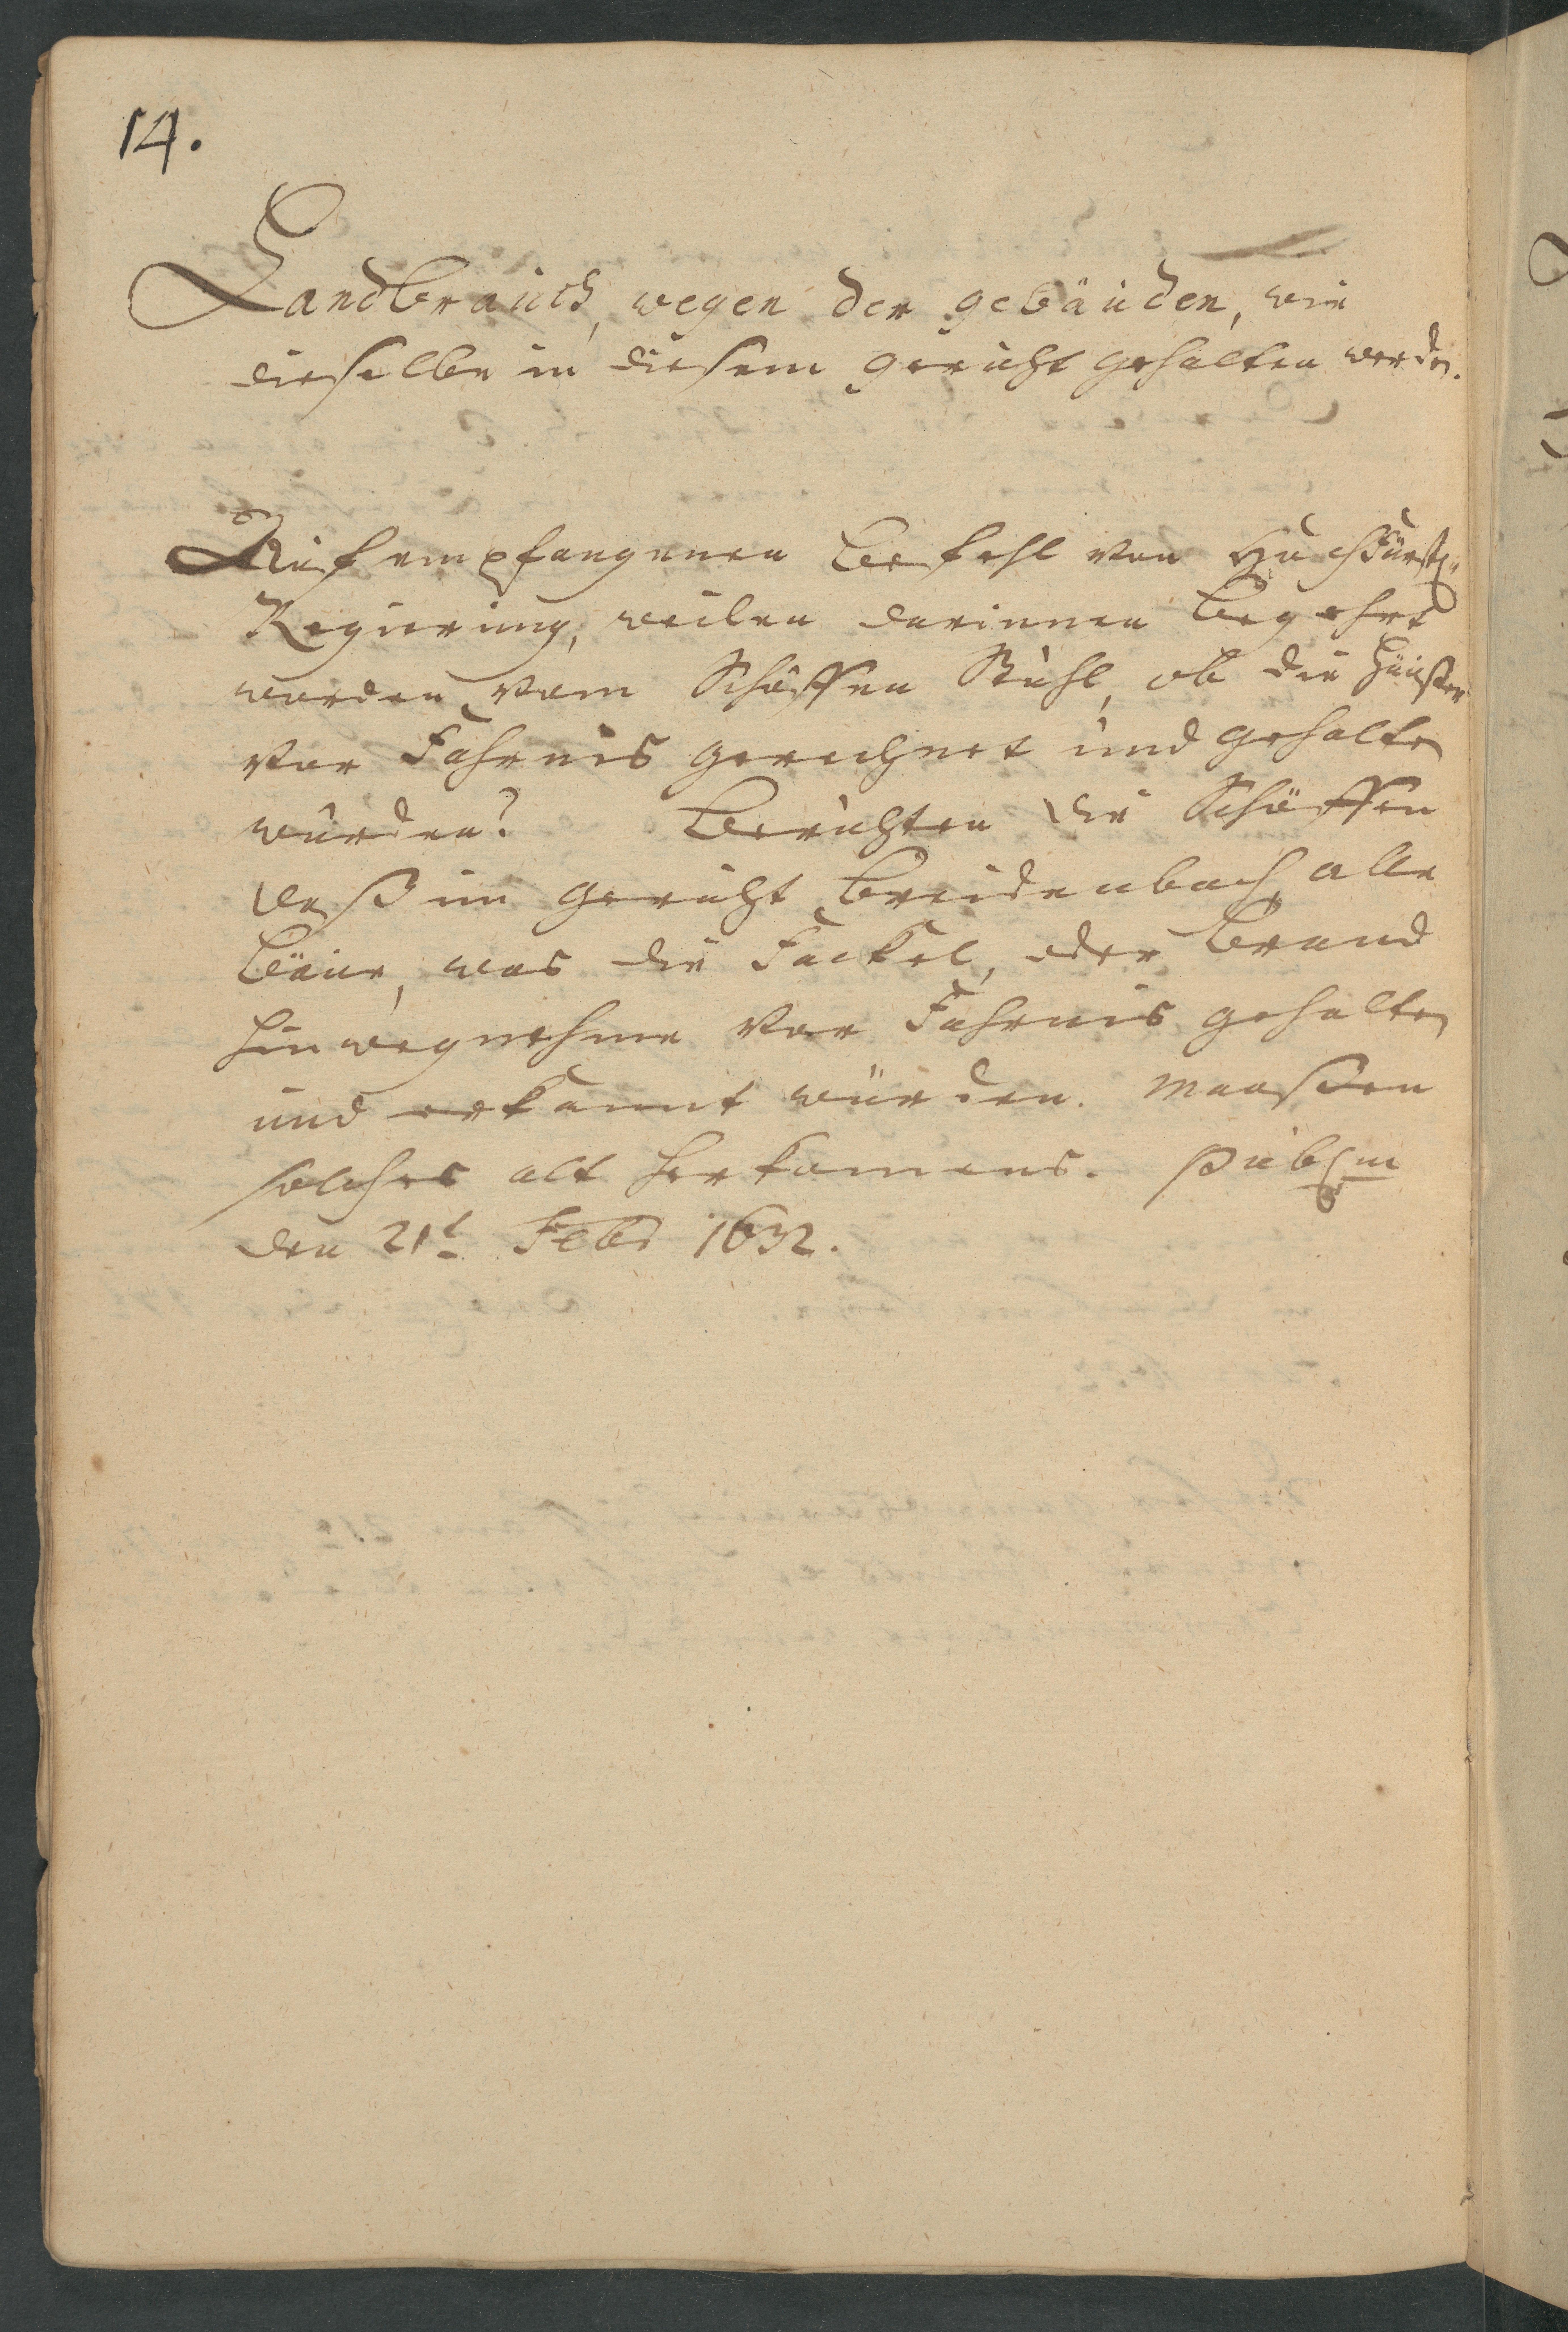 14.
Landbrauch, wegen der gebäuden, wie
dieselbe in diesem gericht gehalten werden.
Auf empfangenen Befehl von Hochfürstl.
Regierung, weilen darinnen begehrt
worden vom Schöffen Stuhl, ob die Häußer
vor Fahrnis gerechnet und gehalten
würden? Berichten die Schöffen
daß im gericht Breidenbach alle
Bäue, was die Fackel, oder Brand
hinwegnehme vor Fahrnis gehalten
und erkannt würden. Maaßen
solches alt herkomens. Publ.
den 21t Febr 1632.